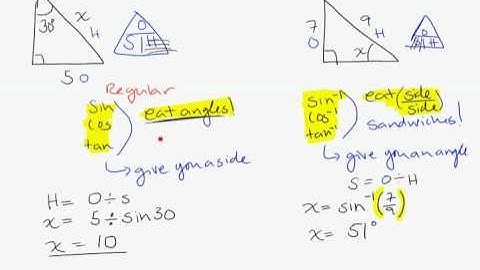 30°
x
H
O
S H
5 O
7
O
9
H
x
O
S H
Regular
Sin
cos
tan
eat angles!
↳ give you a side
H = O ÷ s
x = 5 ÷ sin30
x = 10
Sin⁻¹
cos⁻¹
tan⁻¹
eat (side/side)
sandwiches!
↳ give you an angle
S = O ÷ H
x = sin⁻¹(7/9)
x = 51°